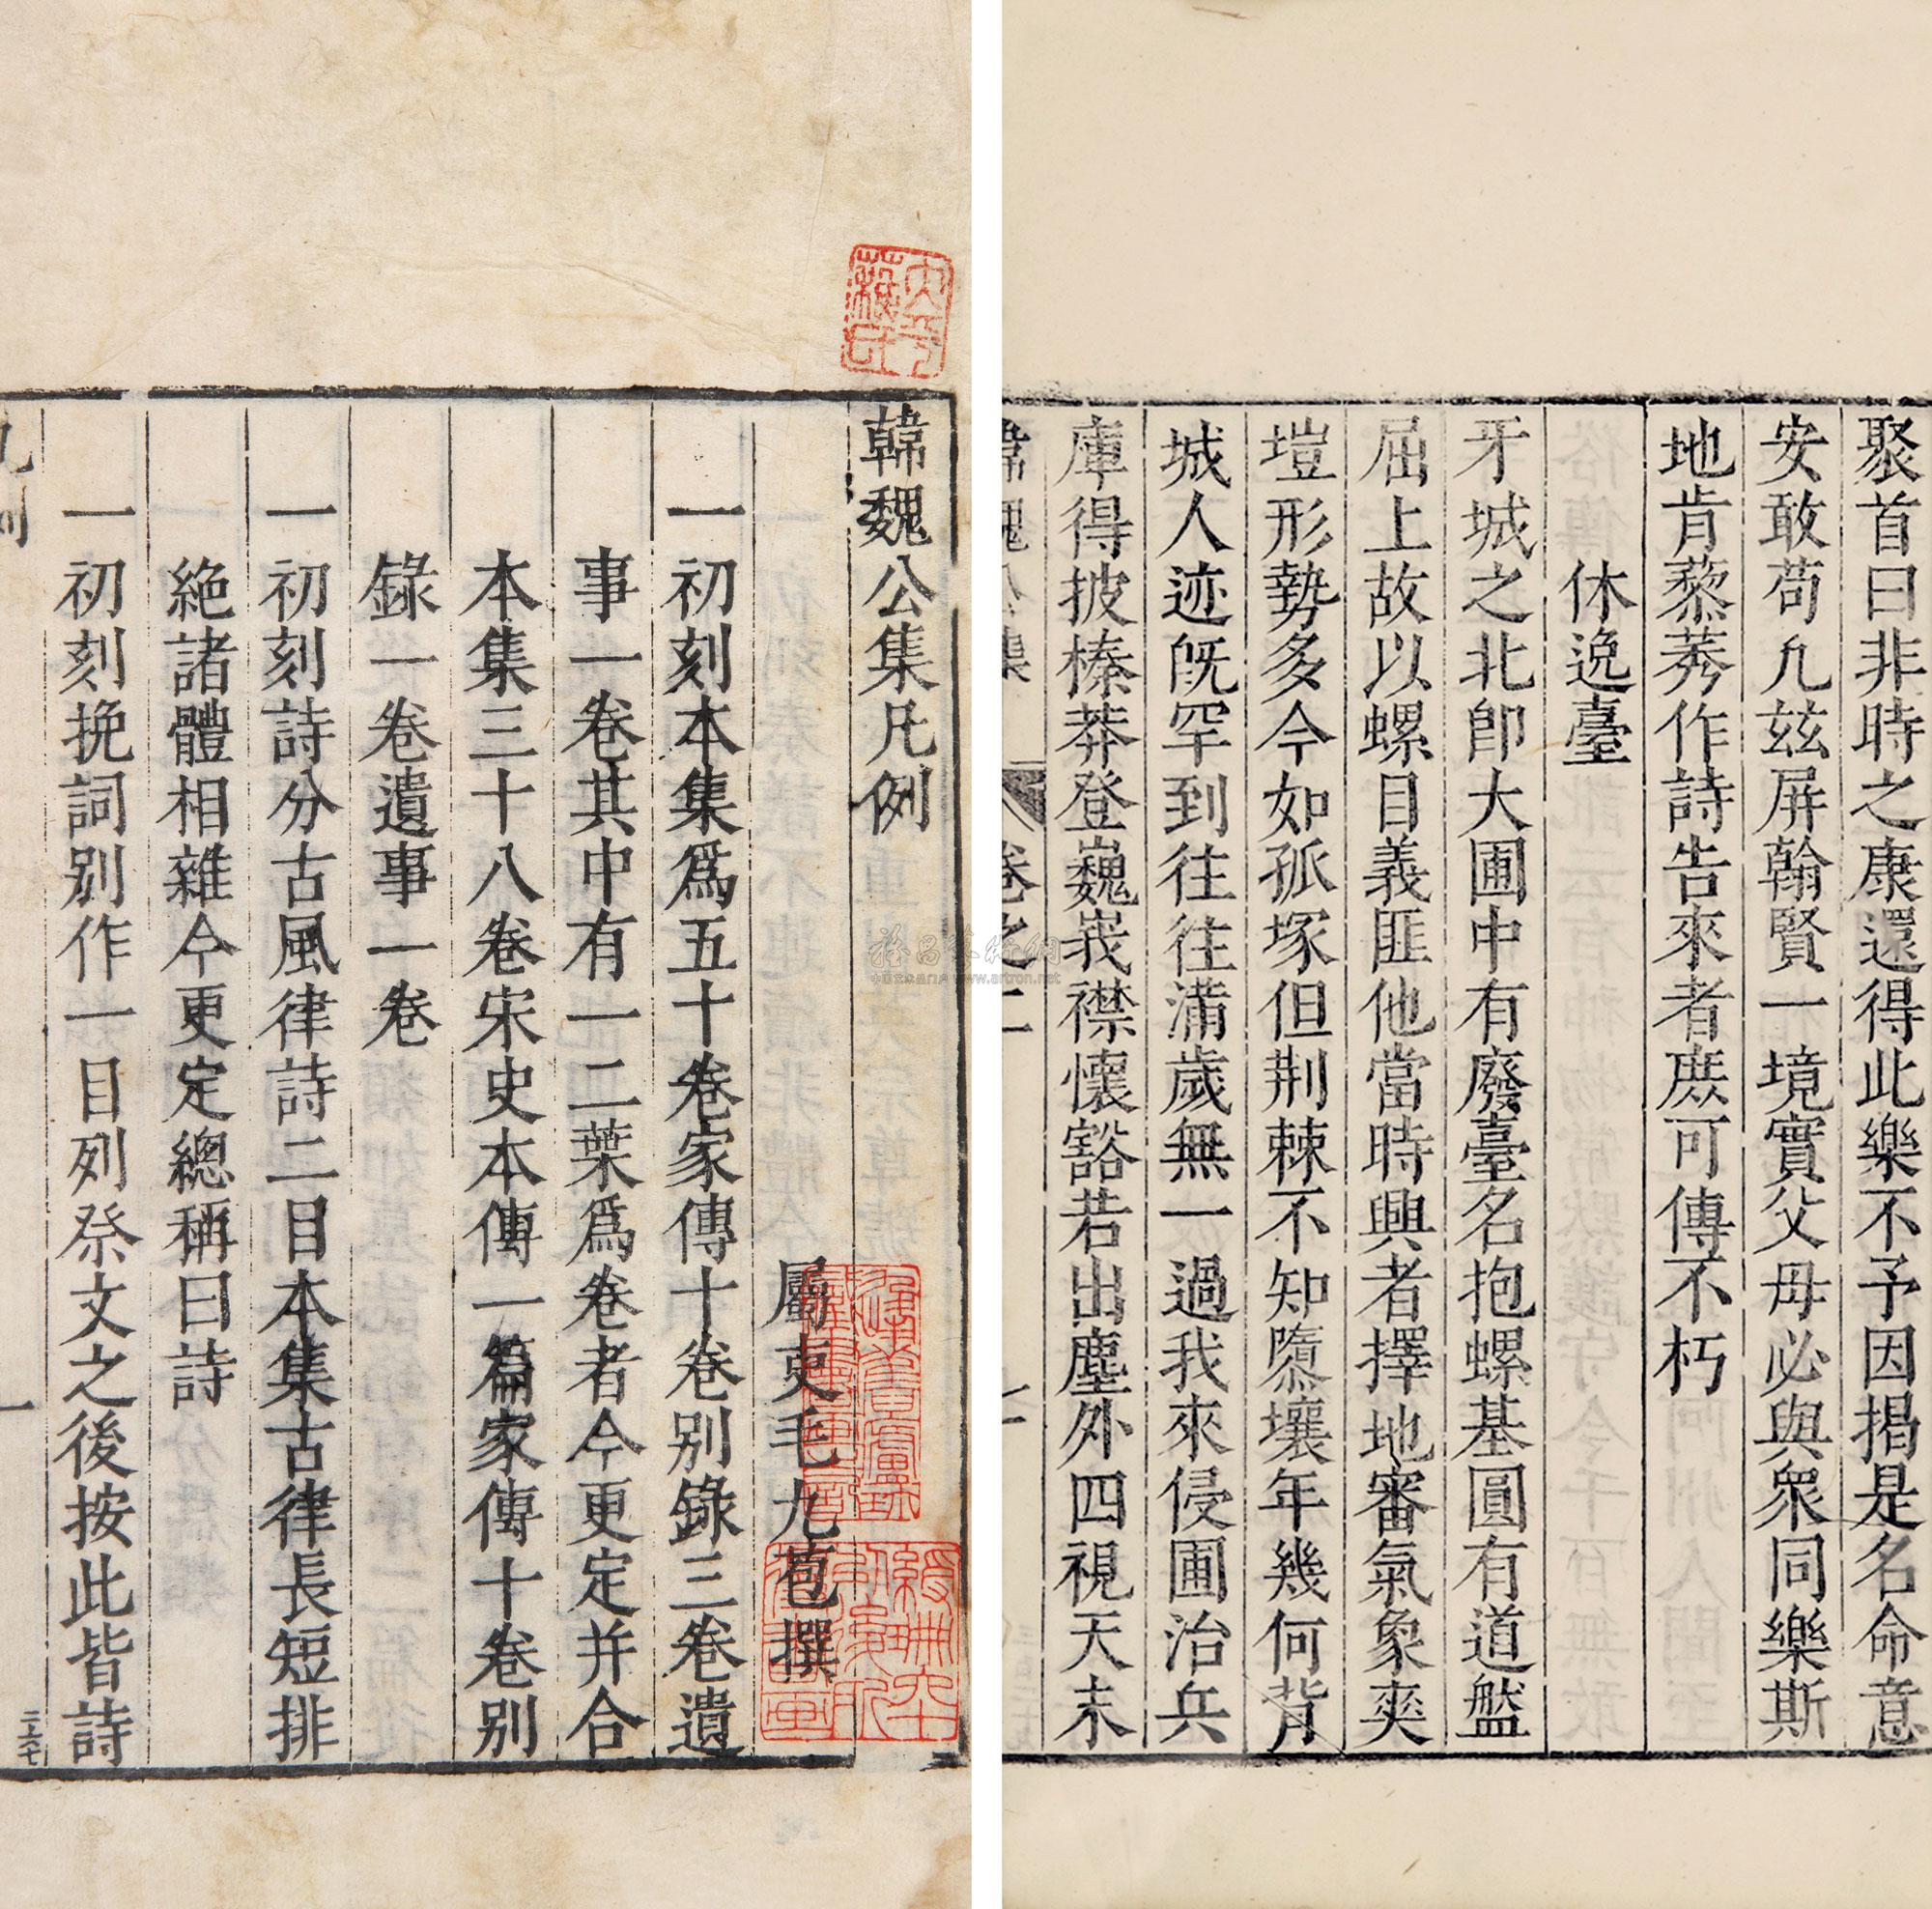 韓魏公集凡例
屬吏毛九苞撰
一初刻本集爲五十卷家傳十卷别錄三卷遺
事一卷其中有一二葉爲卷者今更定并合
本集三十八卷宋史本傳一篇家傳十卷别
錄一卷遺事一卷
一初刻詩分古風律詩二目本集古律長短排
絶諸體相雜今更定總稱曰詩
一初刻挽詞别作一目列祭文之後按此皆詩
凡例
一
聚首曰非時之康還得此樂不予因揭是名命意
安敢苟凢玆屏翰賢一境實父母必與衆同樂斯
地肯藜莠作詩告來者庶可傳不朽
休逸臺
牙城之北卽大圃中有廢臺名抱螺基圓有道盤
屈上故以螺目義匪他當時興者擇地審氣象爽
塏形勢多今如孤塚但荆棘不知隳壞年幾何背
城人迹旣罕到往往滿歲無一過我來侵圃治兵
庫得披榛莽登巍峩襟懷豁若出塵外四視天末
韓魏公集
卷之二